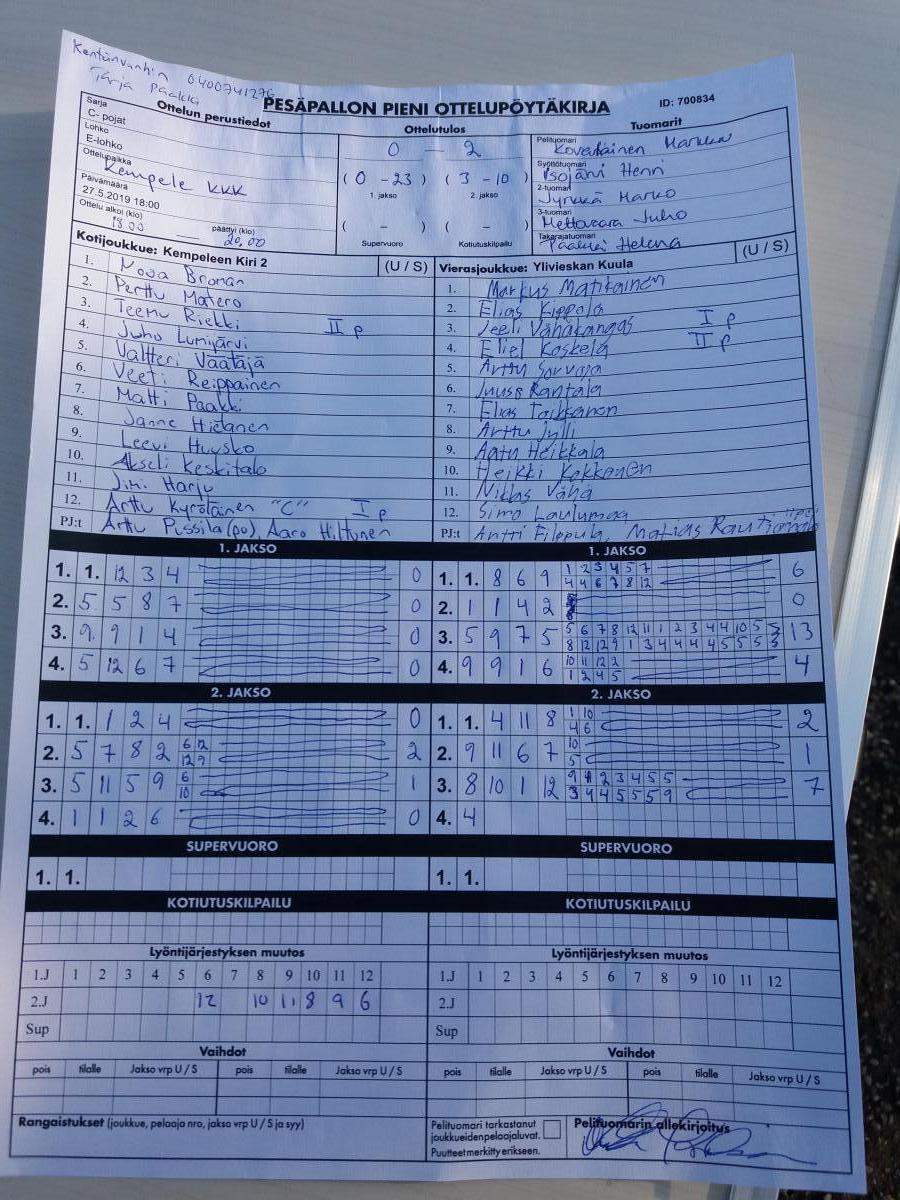 Kentänvanhin 0400741276
Tarja Paakki
PESÄPALLON PIENI OTTELUPÖYTÄKIRJA
ID: 700834
Ottelun perustiedot
Ottelutulos
Tuomarit
Sarja
C- pojat
Lohko
E-lohko
Ottelupaikka
Kempele KKK
Päivämäärä
27.5.2019 18:00
Ottelu alkoi (klo)
18.00
päättyi (klo)
20.00
0 - 2
( 0 - 23 ) ( 3 - 10 )
1. jakso 2. jakso
( - ) ( - )
Supervuoro Kotiutuskilpailu
Pelituomari
Markku
Syöttötuomari
Isojäni Henri
2-tuomari
Jyrkkä Marko
3-tuomari
Mettovaara Juho
Takarajatuomari
Helena
Kotijoukkue: Kempeleen Kiri 2 (U / S)
1. Nooa Broman
2. Perttu Matero
3. Teemu Riekki
4. Juho Lumijärvi II p
5. Valtteri Väätäjä
6. Veeti Reippainen
7. Matti Paakki
8. Janne Hietanen
9. Leevi Huusko
10. Akseli Keskitalo
11. Jiri Harju
12. Arttu Kyröläinen "C" I p
PJ:t Arttu Pussila (po), Aaro Hiltunen
Vierasjoukkue: Ylivieskan Kuula (U / S)
1. Markus Matikainen
2. Elias Kippola
3. Jeeli Vähäkangas I p
4. Eliel Koskela II p
5. Arttu Sorvoja
6. Juuso Rantala
7. Elias Toikkanen
8. Arttu Jylli
9. Aatu Heikkala
10. Heikki Kokkonen
11. Niklas Vähä
12. Simo Laulumaa
PJ:t Antti Filppula, Matias
1. JAKSO
1. 1. 12 3 4 0
2. 5 5 8 7 0
3. 9 9 1 4 0
4. 5 12 6 7 0
1. JAKSO
1. 1. 8 6 9 1 2 3 4 5 7 6
4 4 6 7 8 12
2. 1 1 4 2 0
3. 5 9 7 5 5 6 7 8 12 11 1 2 3 4 4 10 5 5 13
8 12 12 9 1 3 4 4 4 4 5 5 5 3
4. 9 9 1 6 10 11 12 2 4
1 2 4 5
2. JAKSO
1. 1. 1 2 4 0
2. 5 7 8 2 6 12 2
12 9
3. 5 11 5 9 6 1
10
4. 1 1 2 6 0
2. JAKSO
1. 1. 4 11 8 1 10 2
4 6
2. 9 11 6 7 10 1
5
3. 8 10 1 12 9 1 2 3 4 5 5 7
3 4 4 5 5 5 9
4. 4
SUPERVUORO
1. 1.
SUPERVUORO
1. 1.
KOTIUTUSKILPAILU
KOTIUTUSKILPAILU
Lyöntijärjestyksen muutos
1.J 1 2 3 4 5 6 7 8 9 10 11 12
2.J 12 10 11 8 9 6
Sup
Lyöntijärjestyksen muutos
1.J 1 2 3 4 5 6 7 8 9 10 11 12
2.J
Sup
Vaihdot
pois tilalle Jakso vrp U / S pois tilalle Jakso vrp U / S
Vaihdot
pois tilalle Jakso vrp U / S pois tilalle Jakso vrp U / S
Rangaistukset (joukkue, pelaaja nro, jakso vrp U / S ja syy)
Pelituomari tarkastanut
joukkueiden pelaajaluvat.
Puutteet merkitty erikseen.
Pelituomarin allekirjoitus